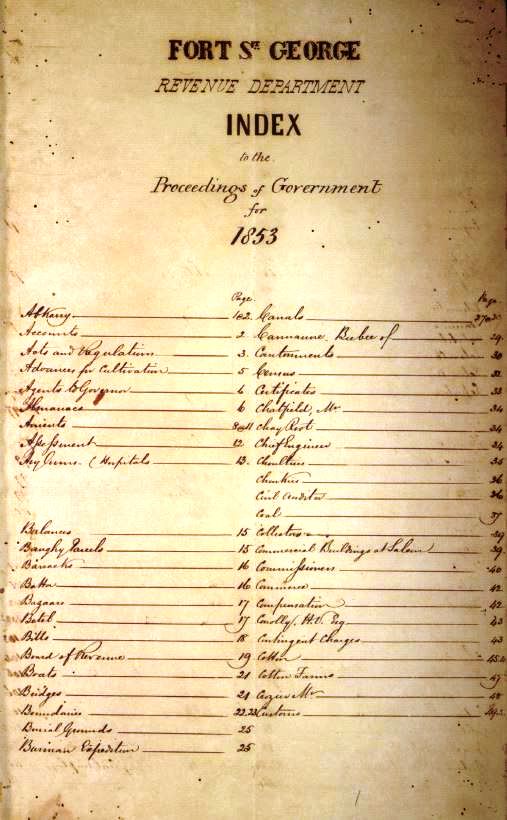 FORT St. GEORGE
REVENUE DEPARTMENT
INDEX
to the
Proceedings of Government
for
1853
Page
Abkarry 1&2
Accounts 2
Acts and Regulations 3
Advances for Cultivation 5
Agents to Governor 4
Almanacs 6
Arrears
Assessment 12
(Hospitals 13
Balances 15
Banghy Parcels 15
Barracks 16
Batta 16
Bazaars 17
Betel 17
Bills 18
Board of Revenue 19
Boats 21
Bridges 21
Boundaries 22.23
Burial Grounds 25
Burman Expedition 25
Page
Canals
Cannanore Beebee of 29
Cantonments 30
Census 32
Certificates 33
Chatfield, Mr 34
Choy Root 34
Chief Engineer 34
Choultries 35
36
Civil Auditor 36
Coal 37
Collectors 39
Commercial Buildings at Salem 39
Commissioners 40
Commerce 42
Compensation 42
Conolly, H.V. Esq 43
Contingent Charges 43
Cotton
Cotton Farms 47
Crozier Mr 48
Customs